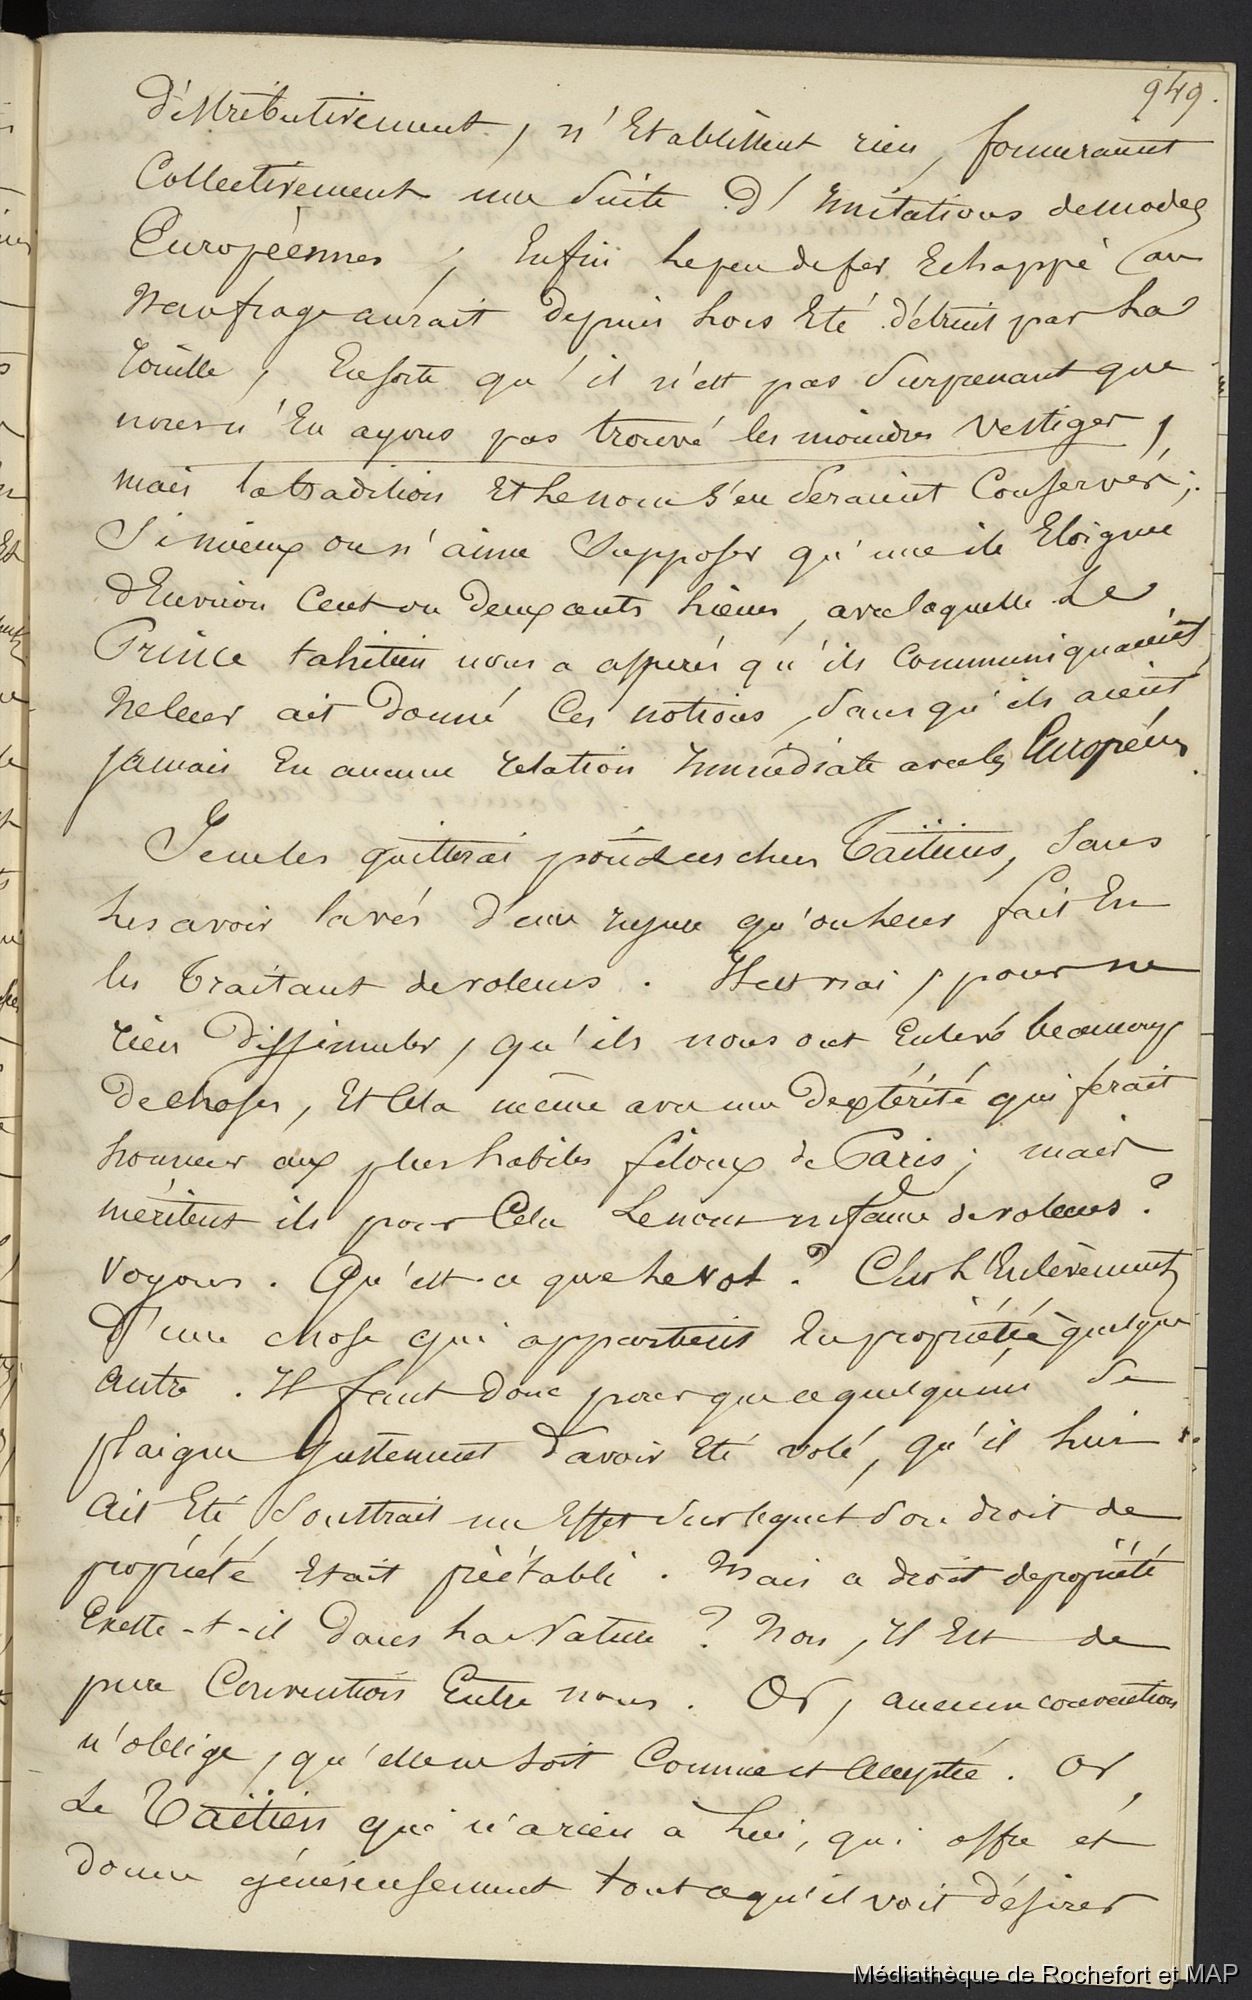 949.
distributivement, n'Etablissent rien, formeraient
Collectivement une Suite d'Imitations de modes
Européennes ; Enfin le peu de fer Echappé au
Naufrage aurait depuis lors Eté détruit par la
rouille, Ensorte qu'il n'est pas Surprenant que
nous n'En ayons pas trouvé les moindres Vestiges,
mais la tradition Et le nom S'en Seraient Conservés ;
Si mieux on n'aime Supposer qu'une ile Eloignée
d'Environ Cent ou Deux cents lieues, avec laquelle Le
Prince tahitien nous a assurés qu'ils Communiquaient,
ne leur ait Donné Ces notions, Sans qu'ils aient
jamais Eu aucune relation Immédiate avec les Européens.
Je ne les quitterai point ces chers Taïtiens, Sans
les avoir lavés d'une injure qu'on leur fait En
les Traitant de voleurs. Il est vrai, pour ne
rien Dissimuler, qu'ils nous ont Enlevé beaucoup
de choses, Et Cela même avec une Dextérité qui ferait
honneur aux plus habiles filoux de Paris ; mais
méritent ils pour Cela Le nom infame de voleurs ?
Voyons. Qu'est-ce que le vol ? C'est l'Enlèvement
d'une chose qui appartient En propriété à quelque
autre. Il faut Donc pour que ce quelqu'un Se
plaigne Justement d'avoir Eté volé, qu'il lui
Ait Eté Soustrait un Effet Sur lequel Son droit de
propriété Etait préétabli. Mais ce droit de propriété
Existe-t-il Dans la Nature ? Non, Il Est de
pure Convention Entre nous. Or, aucune convention
n'oblige, qu'elle ne Soit Connue et Acceptée. Or,
Le Taïtien qui n'a rien à Lui, qui offre et
Donne généreusement tout ce qu'il voit désirer
Médiathèque de Rochefort et MAP